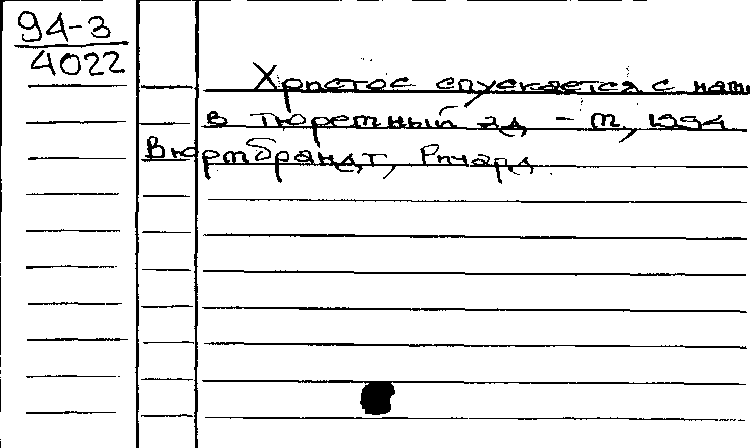 94-3
4022
Христос спускается с нами
в тюремный ад - м, 1994
Вюрмбрандт, Ричард